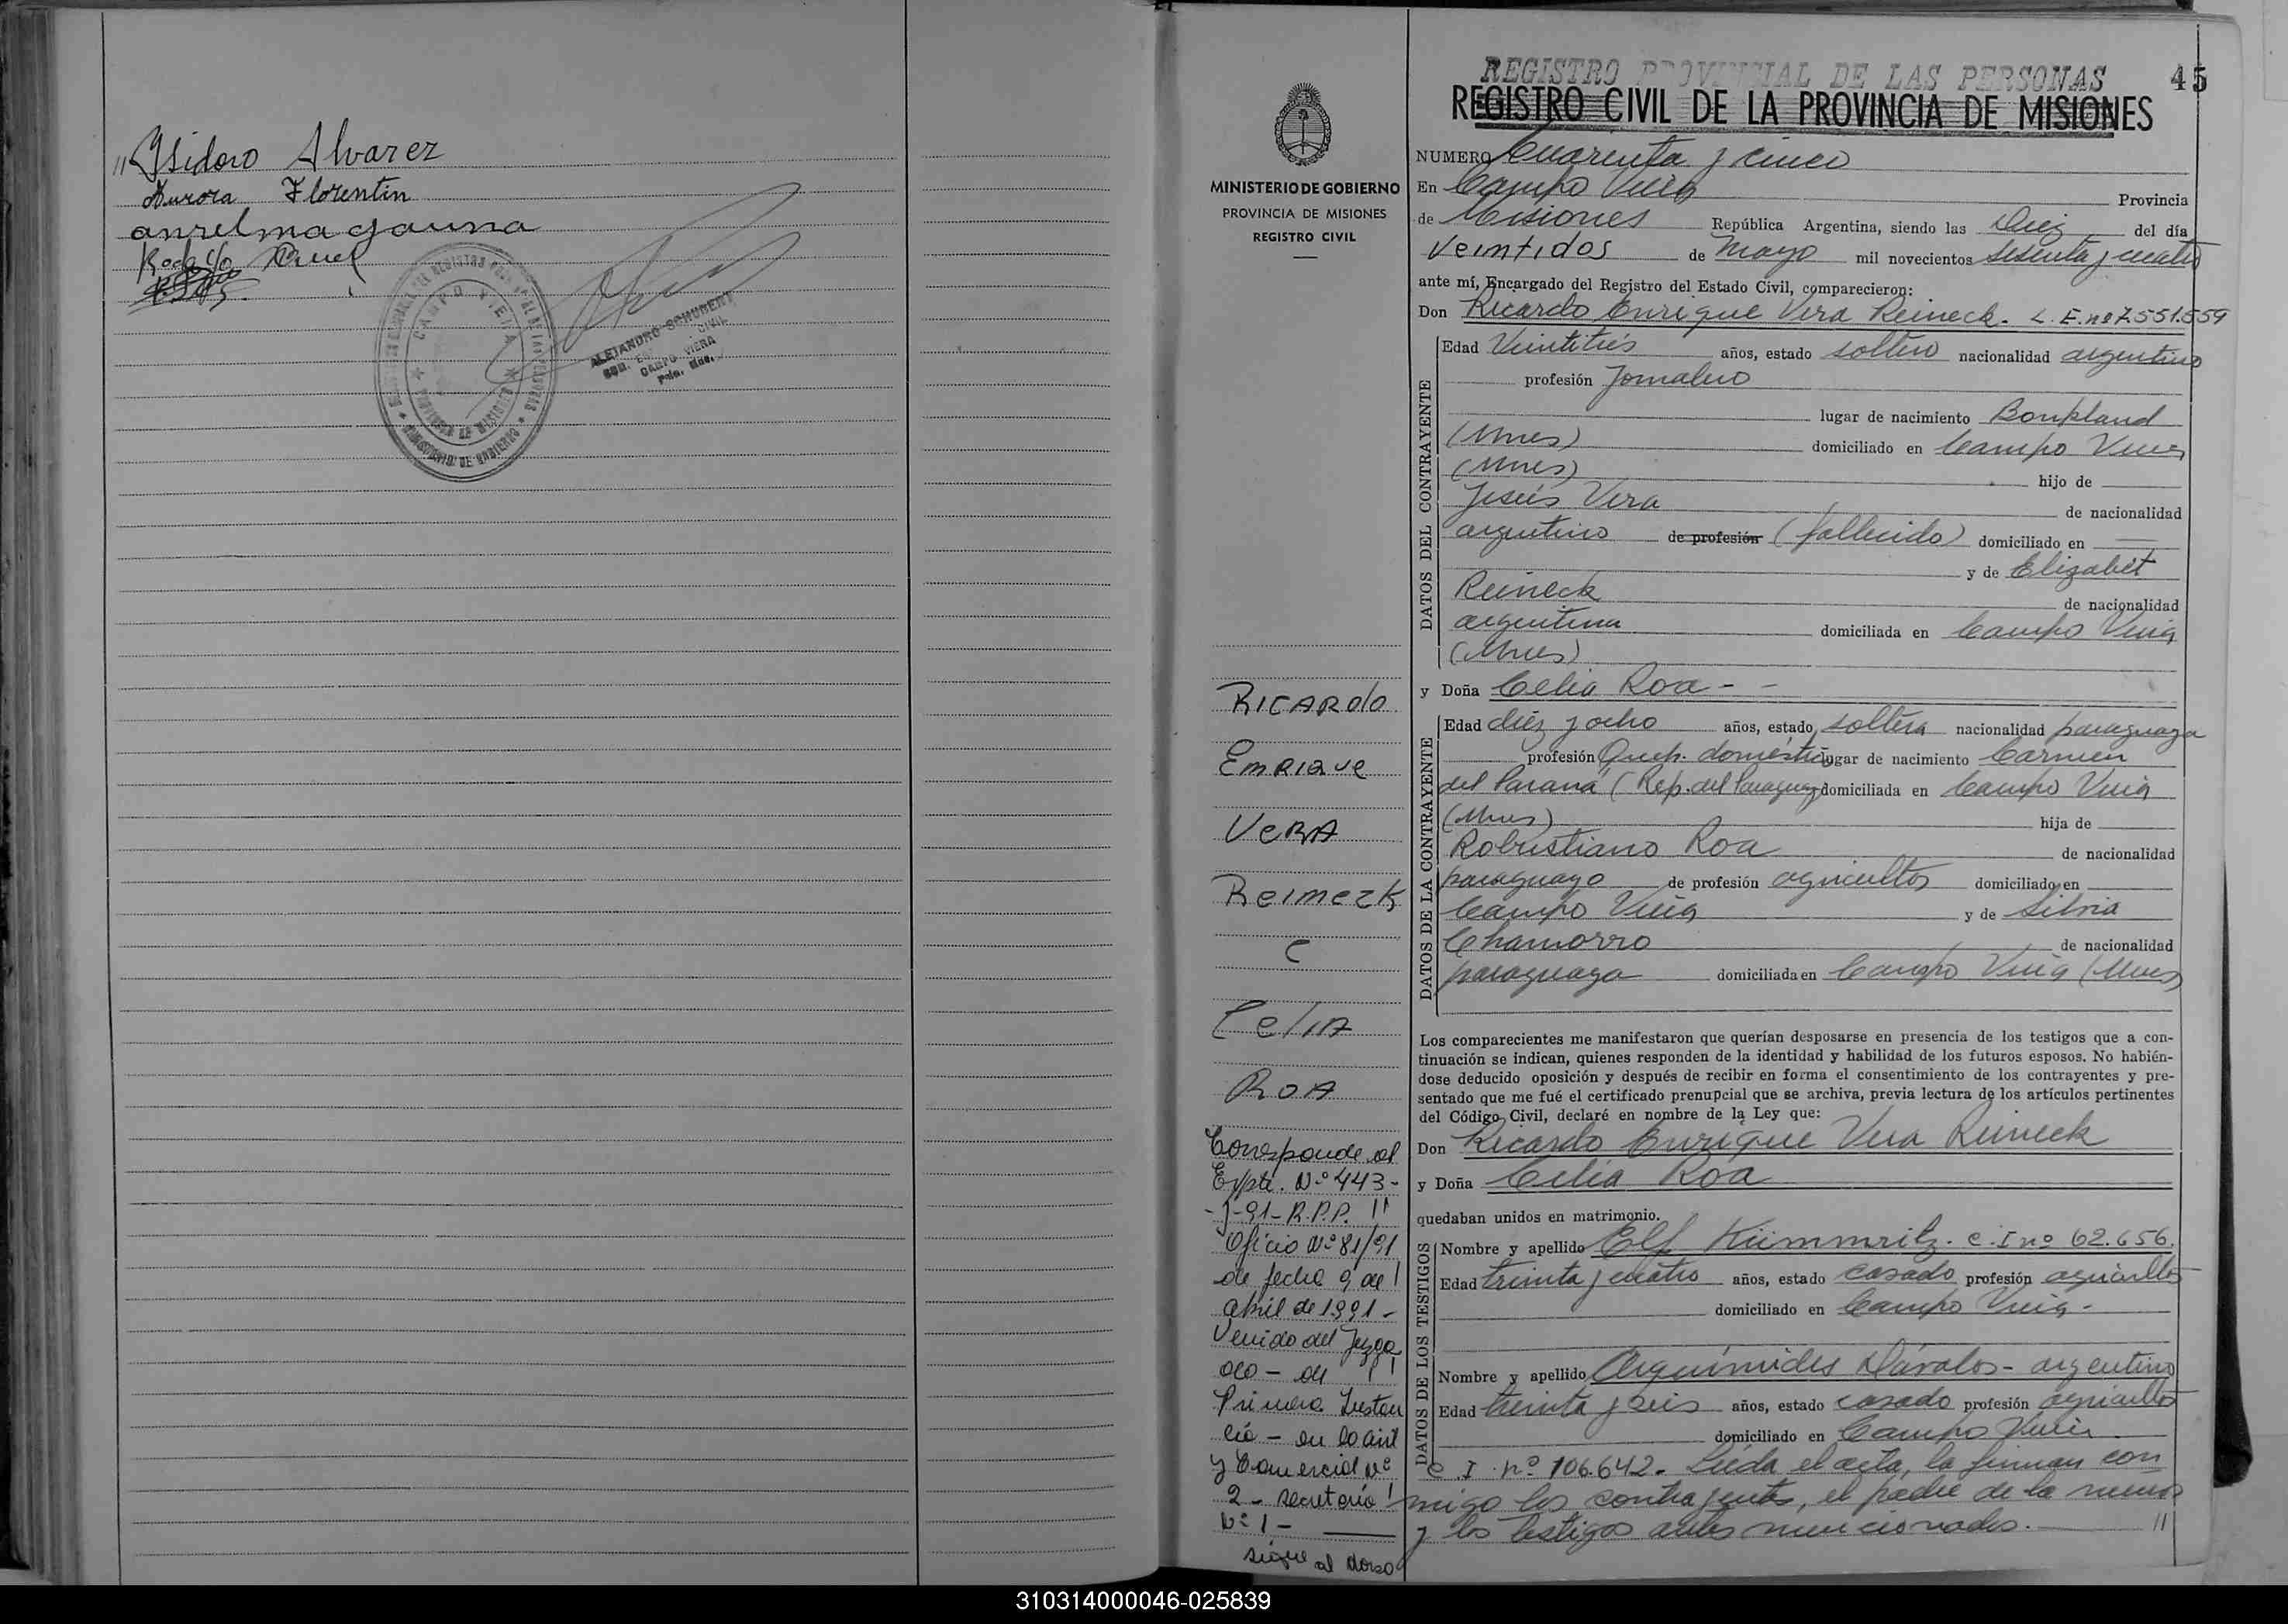 "Isidoro Alvarez
Aurora Florentin
anselma gauna
REGISTRO PROVINCIAL DE LAS PERSONAS
CAMPO VIERA
MINISTERIO DE GOBIERNO
ALEJANDRO SCHUBERT
CIVIL
CAMPO VIERA
Pcia. Mnes.
REGISTRO PROVINCIAL DE LAS PERSONAS 45
REGISTRO CIVIL DE LA PROVINCIA DE MISIONES
MINISTERIO DE GOBIERNO
PROVINCIA DE MISIONES
REGISTRO CIVIL
RICARdo
EnRIQue
VeRA
Reineck
e
CeliA
ROA
Corresponde al
Expte. Nº 443-
-J-91-R.P.P. "
Oficio Nº 81/91
de fecha 9 de
abril de 1991-
Venido del Juzga
do - de
Primera Instan
cia - en lo civil
y Comercial Nº
2 - secretaria
Nº 1 -
sigue al dorso
NUMERO Cuarenta y cinco
En Campo Viera Provincia
de Misiones República Argentina, siendo las Diez del día
veintidos de mayo mil novecientos sesenta y cuatro
ante mí, Encargado del Registro del Estado Civil, comparecieron:
Don Ricardo Enrique Vera Reineck. L. E. nº 7.551.559
DATOS DEL CONTRAYENTE
Edad Veintitrés años, estado soltero nacionalidad argentino
profesión Jornalero
lugar de nacimiento Bonpland
(Mnes) domiciliado en Campo Viera
(Mnes) hijo de
Jesús Vera de nacionalidad
argentino de profesión (fallecido) domiciliado en
y de Elizabet
Reineck de nacionalidad
argentina domiciliada en Campo Viera
(Mnes)
y Doña Celia Roa - -
DATOS DE LA CONTRAYENTE
Edad diez y ocho años, estado soltera nacionalidad paraguaya
profesión Queh. domésticos lugar de nacimiento Carmen
del Paraná (Rep. del Paraguay) domiciliada en Campo Viera
(Mnes) hija de
Robustiano Roa de nacionalidad
paraguayo de profesión agricultor domiciliado en
Campo Viera y de Silvia
Chamorro de nacionalidad
paraguaya domiciliada en Campo Viera (Mnes)
Los comparecientes me manifestaron que querían desposarse en presencia de los testigos que a con-
tinuación se indican, quienes responden de la identidad y habilidad de los futuros esposos. No habién-
dose deducido oposición y después de recibir en forma el consentimiento de los contrayentes y pre-
sentado que me fué el certificado prenupcial que se archiva, previa lectura de los artículos pertinentes
del Código Civil, declaré en nombre de la Ley que:
Don Ricardo Enrique Vera Reineck
y Doña Celia Roa
quedaban unidos en matrimonio.
DATOS DE LOS TESTIGOS
Nombre y apellido Elf Kümmritz. C. I nº 62.656.
Edad treinta y cuatro años, estado casado profesión agricultor
domiciliado en Campo Viera.
Nombre y apellido Arquímides Dávalos - argentino
Edad treinta y seis años, estado casado profesión agricultor
domiciliado en Campo Viera.
C. I. nº 106.642. Leída el acta, la firman con
migo los contrayentes, el padre de la menor
y los testigos antes mencionados. "
310314000046-025839